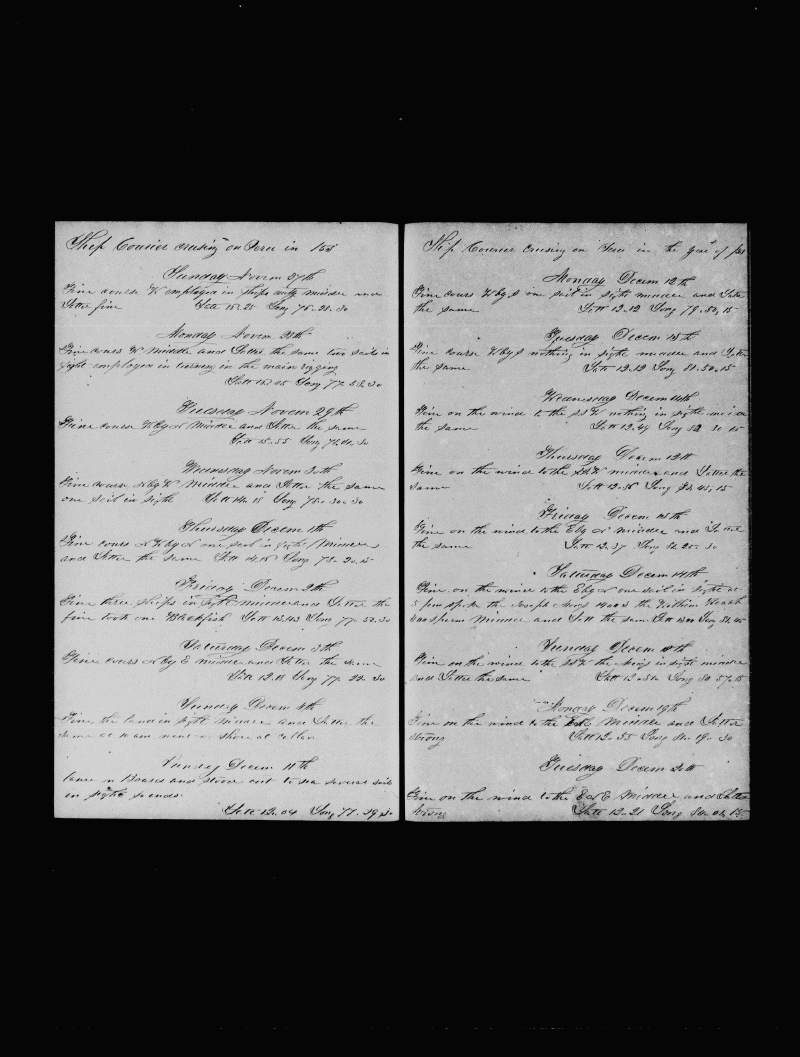 Ship Courier Cruising on Peru in 185
Sunday Novem 27th
Fine course W employed in Ships duty middle and
Latter fine Latt 15.25 Long 76.28.30
Monday Novem 28th
Fine cours W Middle and Latter the same two sails in
sight employed in turning in the main rigging
Latt Long 77
Tuesday Novem 29th
Fine course W by N Middle and Latter the same
Latt 15.55 Long
Wednesday Novem 30th
Fine course N by W Middle and Latter the same
one sail in sight Latt Long 78.30.30
Thursday Decem 1th
Fine cours N W by N one sail in sight Middle
and Latter the same Latt Long 78.20.15
Friday Decem 2th
Fine three ships in sight middle and Latter the
fine took one Blackfish Latt 13.43 Long 77.52.30
Saturday Decem 3th
Fine cours N by E middle and Latter the same
Latt 12.11 Long 77.22.30
Sunday Decem 4th
Fine the land in sight Middle and Latter the
same at 10 am went on shore at Callao
Sunday Decem 11th
came n Board and stood out to sea several sails
in sight so ends
Latt 12.04 Long 77.39.30
Ship Courier Cruising on Peru in the year of
Monday Decem 12th
Fine cours W by S one sail in sight middle and Latter
the same Latt 12.12 Long 79.50.15
Tuesday Decem 13th
Fine course W by S nothing in sight middle and Latter
the same Latt 12.12 Long 81.30.15
Wednesday Decem 14th
Fine on the wind to the SSW nothing in sight middle
the same Latt 12.47 Long 82 30 15
Thursday Decem 12th
Fine on the wind to the middle and Latter the
same Latt 12.56 Long 82.45.15
Friday Decem 13th
Fine on the wind to the E by N middle and Latter
the same Latt 12.37 Long 82.25.30
Saturday Decem 14th
Fine on the wind to the E by N one sail in sight at
5 pm spoke the Joseph Meigs the William
sperm Middle and Latt the same Latt Long
Sunday Decem 18th
Fine on the wind to the the Meigs in sight middle
and Latter the same Latt Long 80.57.15
Monday Decem 19th
Fine on the wind to the Middle and Latter
strong Latt 12.35 Long 80.19.30
Tuesday Decem 20th
Fine on the wind to the Middle and Latter
strong Latt 12.21 Long 80.04.15